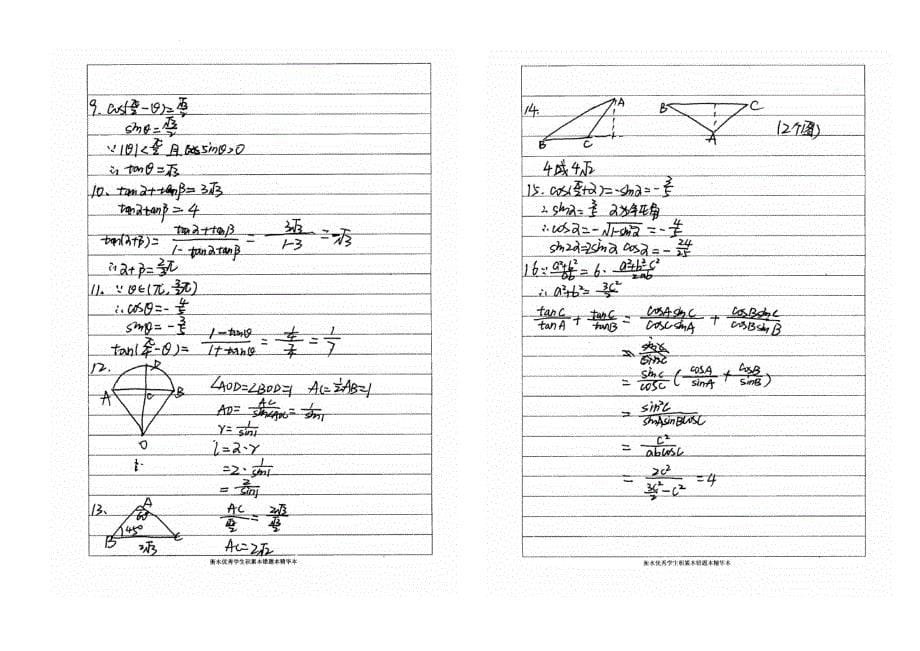 9. cos(π/2-θ)=√3/2
sinθ=√3/2
∵|θ|<π/2 且 sinθ>0
∴ tanθ=√3
10. tanα+tanβ=3√3
tanαtanβ=4
tan(α+β)=(tanα+tanβ)/(1-tanαtanβ)=3√3/(1-3)=-√3
∴α+β=2/3π
11. ∵θ∈(π,3/2π)
∴cosθ=-4/5
sinθ=-3/5
tan(π/4-θ)=(1-tanθ)/(1+tanθ)=(1/4)/(7/4)=1/7
12.
D
A C B
O
∠AOD=∠BOD=1 AC=1/2AB=1
AO=AC/sin∠AOC=1/sin1
r=1/sin1
l=2·r
=2·1/sin1
=2/sin1
13.
A
60°
45°
B C
2√3
AC/(√2/2)=2√3/(√3/2)
AC=2√2
衡水优秀学生积累本错题本精华本
14.
A
B C
B C
A
(2个图)
4或4√2
15. cos(π/2+α)=-sinα=-3/5
∴sinα=3/5 α为钝角
∴cosα=-√(1-sin²α)=-4/5
sin2α=2sinα cosα=-24/25
16∵(a²+b²)/ab=6·(a²+b²-c²)/2ab
∴a²+b²=3c²/2
tanC/tanA+tanC/tanB=cosAsinC/cosCsinA+cosBsinC/cosBsinB
=sinC/cosC(cosA/sinA+cosB/sinB)
=sin²C/sinAsinBcosC
=c²/abcosC
=2c²/(3c²/2-c²)=4
衡水优秀学生积累本错题本精华本